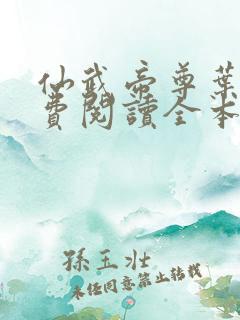 仙武帝尊葉
費閱讀全本
孫玉壯
未經同意禁止轉載